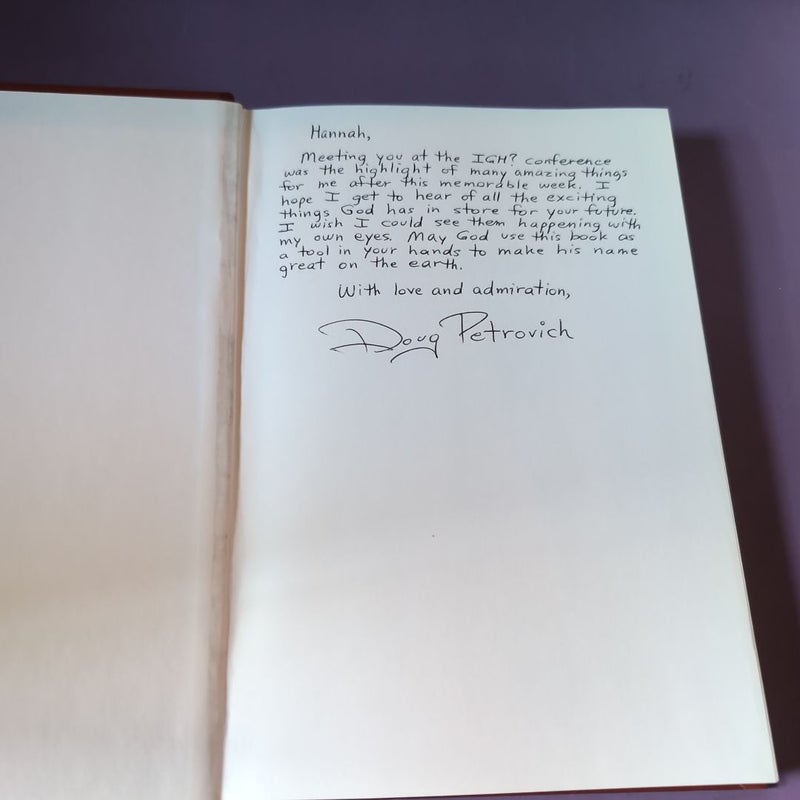 Hannah,
Meeting you at the IGH? conference
was the highlight of many amazing things
for me after this memorable week. I
hope I get to hear of all the exciting
things God has in store for your future.
I wish I could see them happening with
my own eyes. May God use this book as
a tool in your hands to make his name
great on the earth.
With love and admiration,
Doug Petrovich